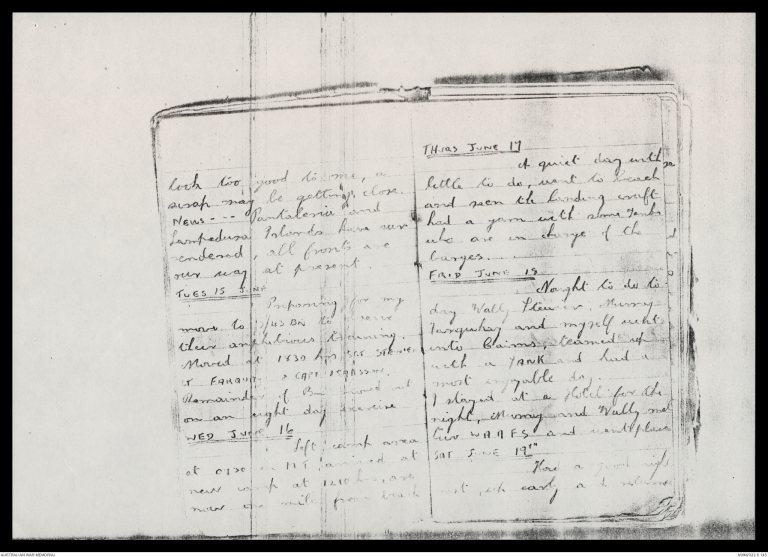 look too good to me, a
scrap may be getting close.
NEWS - - - Pantaleria and
Lampedusa Islands have surr
endered, all fronts are
our way at present.
TUES 15 JUNE
Preparing for my
move to 2/43 BN to
their amphibious training.
Moved at 1830 hrs, SGT
LT FARQUH CAPT
Remainder of Bn moved out
on an eight day exercise
WED JUNE 16
Left camp area
at 0730 in arrived at
new camp at 1210 hrs, are
now one mile from beach
THURS JUNE 17
A quiet day with
little to do, went to beach
and seen the landing craft
had a yarn with some Yanks
who are in charge of the
barges.
FRID JUNE 18
Nought to do to
day Wally Murray
Farquhar and myself went
into Cairns, teamed up
with a YANK and had a
most enjoyable day.
I stayed at a Hotel for the
night, Murray and Wally met
two WAAFS and
SAT JUNE 19th
Had a good night
rest, early and returned
AUSTRALIAN WAR MEMORIAL